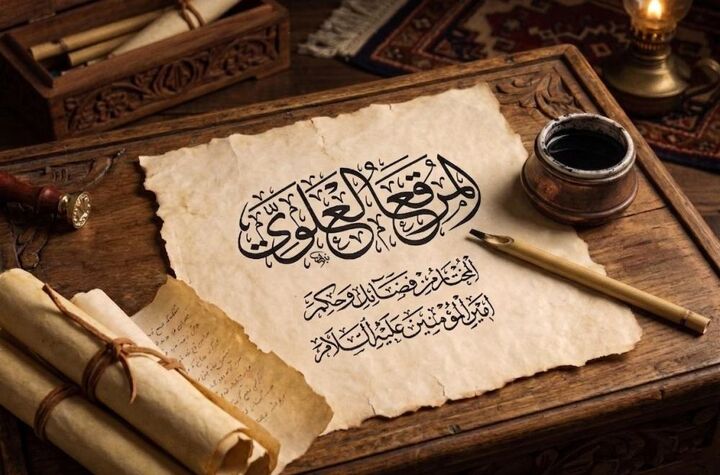 المُرقّعُ العَلَويّ
المُختارُ مِنْ فَضَائِلِ وَحِكَمِ
أَمِيرِ الْمُؤْمِنِينَ عَلَيْهِ السَّلَام